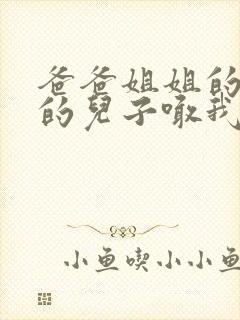 爸爸姐姐的
的兒子噉我
小鱼喫小小鱼